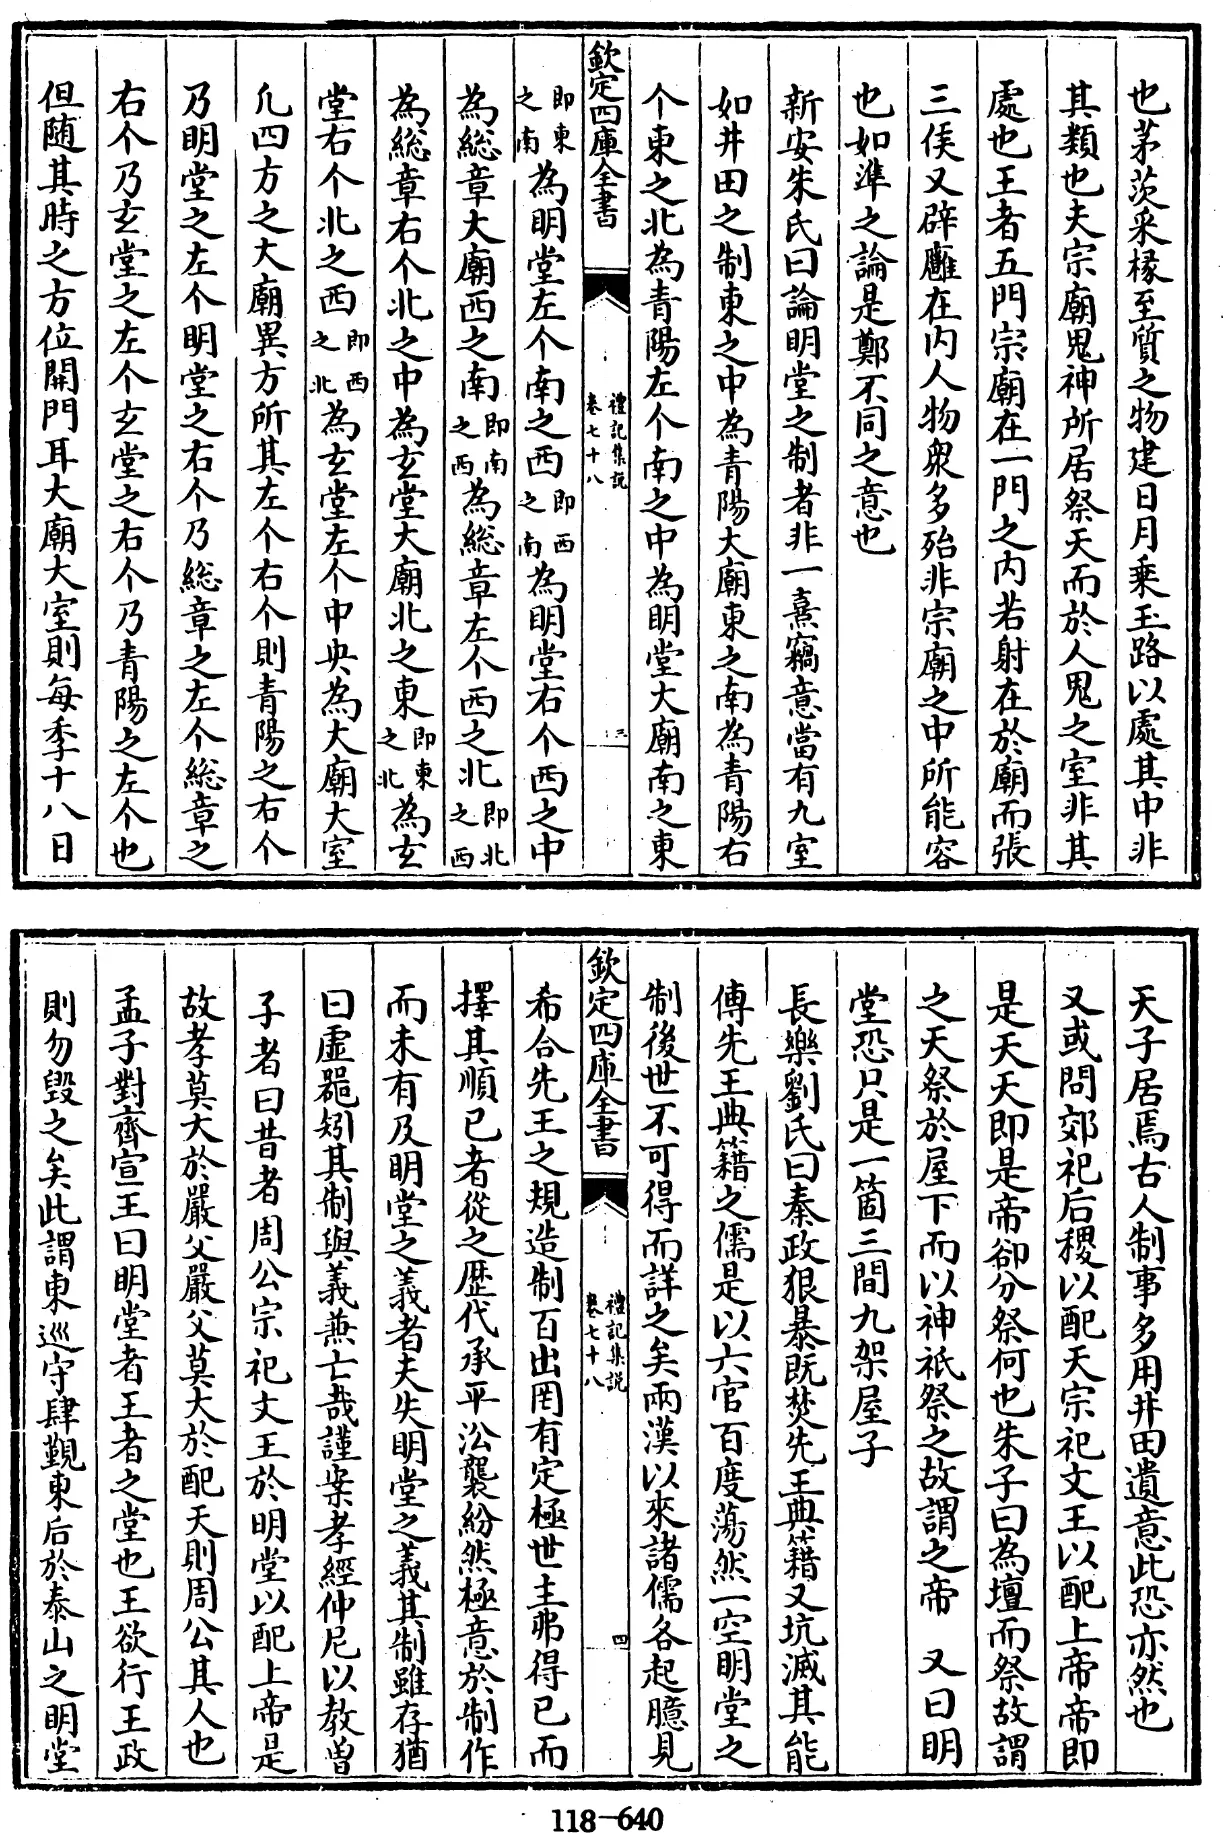 也茅茨采椽至質之物建日月乗玉路以處其中非
其類也夫宗廟鬼神所居祭天而於人鬼之室非其
處也王者五門宗廟在一門之内若射在於廟而張
三侯又辟廱在内人物衆多殆非宗廟之中所能容
也如準之論是鄭不同之意也
新安朱氏曰論明堂之制者非一熹竊意當有九室
如井田之制東之中為青陽大廟東之南為青陽右
个東之北為青陽左个南之中為明堂大廟南之東
欽定四庫全書 禮記集説 卷七十八 三
即東之南為明堂左个南之西即西之南為明堂右个西之中
為総章大廟西之南即南之西為總章左个西之北即北之西
為總章右个北之中為玄堂大廟北之東即東之北為玄
堂右个北之西即西之北為玄堂左个中央為大廟大室
凡四方之大廟異方所其左个右个則青陽之右个
乃明堂之左个明堂之右个乃總章之左个總章之
右个乃玄堂之左个玄堂之右个乃青陽之左个也
但随其時之方位開門耳大廟大室則每季十八日
天子居焉古人制事多用井田遺意此恐亦然也
又或問郊祀后稷以配天宗祀文王以配上帝帝即
是天天即是帝卻分祭何也朱子曰為壇而祭故謂
之天祭於屋下而以神祇祭之故謂之帝 又曰明
堂恐只是一箇三間九架屋子
長樂劉氏曰秦政狠暴既焚先王典籍又坑滅其能
傳先王典籍之儒是以六官百度蕩然一空明堂之
制後世不可得而詳之矣兩漢以來諸儒各起臆見
欽定四庫全書 禮記集説 卷七十八 四
希合先王之規造制百出罔有定極世主弗得已而
擇其順已者從之歴代承平㳂襲紛然極意於制作
而未有及明堂之義者夫失明堂之義其制雖存猶
曰虛器矧其制與義兼亡哉謹案孝經仲尼以教曽
子者曰昔者周公宗祀文王於明堂以配上帝是
故孝莫大於嚴父嚴父莫大於配天則周公其人也
孟子對齊宣王曰明堂者王者之堂也王欲行王政
則勿毀之矣此謂東巡守肆覲東后於泰山之明堂
118-640